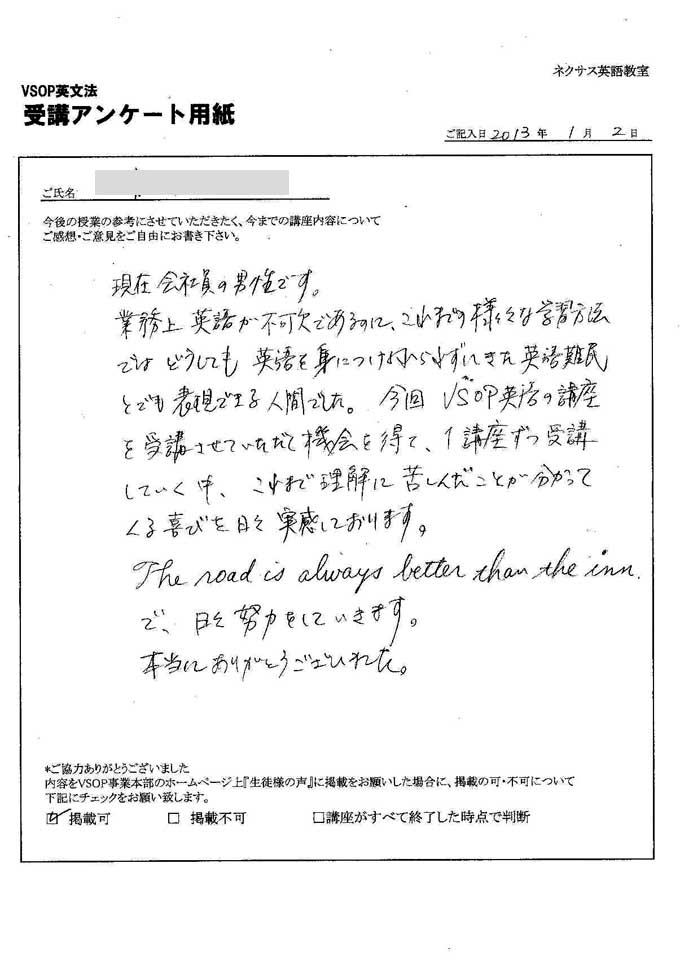 ネクサス英語教室
VSOP英文法
受講アンケート用紙
ご記入日 2013 年 1 月 2 日
ご氏名
今後の授業の参考にさせていただきたく、今までの講座内容について
ご感想・ご意見をご自由にお書き下さい。
現在会社員の男性です。
業務上英語が不可欠であるのに、これまでの様々な学習方法
ではどうしても英語を身につけられずにきた英語難民
とでも表現できる人間でした。今回VSOP英語の講座
を受講させていただく機会を得て、1講座ずつ受講
していく中、これまで理解に苦しんだことが分かって
くる喜びを日々実感しております。
The road is always better than the inn.
で、日々努力をしていきます。
本当にありがとうございました。
*ご協力ありがとうございました
内容をVSOP事業本部のホームページ上『生徒様の声』に掲載をお願いした場合に、掲載の可・不可について
下記にチェックをお願い致します。
☑ 掲載可 □ 掲載不可 □講座がすべて終了した時点で判断